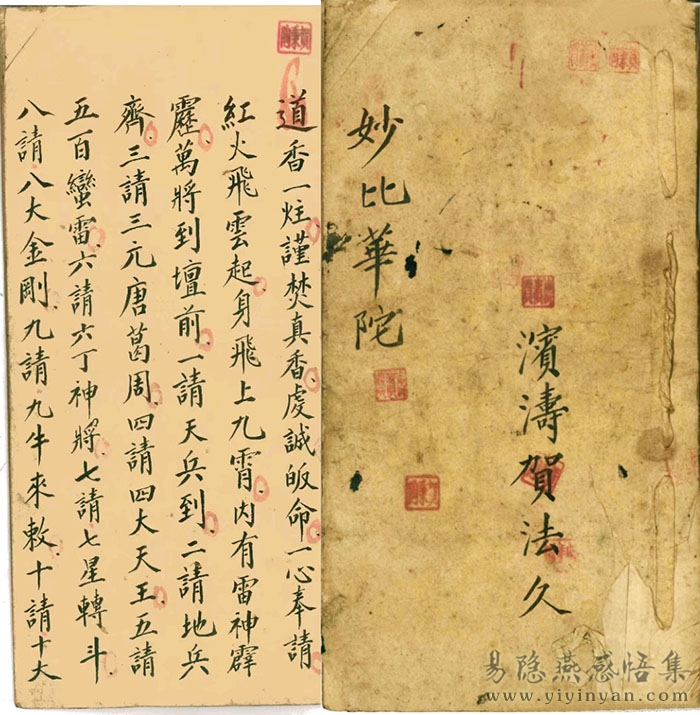 妙比華陀
濱濤賀法久
道香一炷謹焚真香虔誠皈命一心奉請
紅火飛雲起身飛上九霄内有雷神霹
靂萬將到壇前一請天兵到二請地兵
齊三請三元唐葛周四請四大天王五請
五百蠻雷六請六丁神將七請七星轉斗
八請八大金剛九請九牛來敕十請十大
易隐燕感悟集
www.yiyinyan.com